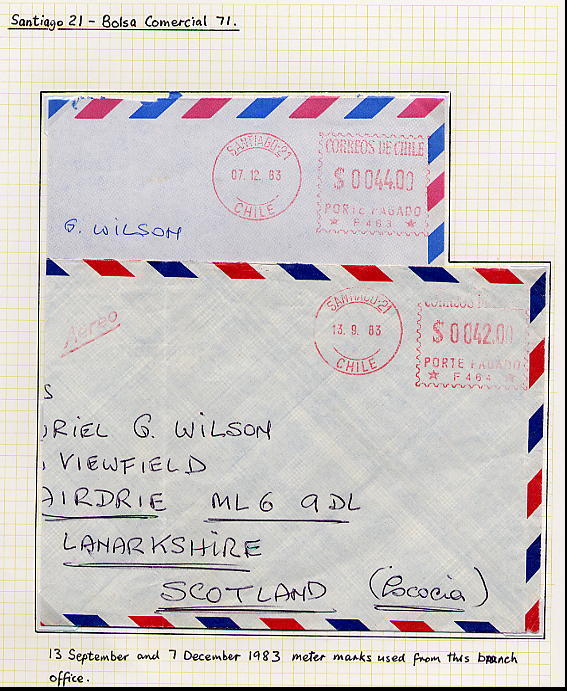 Santiago 21 - Bolsa Comercial 71.
SANTIAGO-21
07.12.83
CHILE
CORREOS DE CHILE
$ 0044.00
PORTE PAGADO
★ F 463 ★
G. WILSON
SANTIAGO-21
13. 9. 83
CHILE
CORREOS DE
$ 0042.00
PORTE PAGADO
★ F 464 ★
Aereo
S
RIEL G. WILSON
VIEWFIELD
AIRDRIE ML6 9DL
LANARKSHIRE
SCOTLAND (Escocia)
13 September and 7 December 1983 meter marks used from this branch
office.